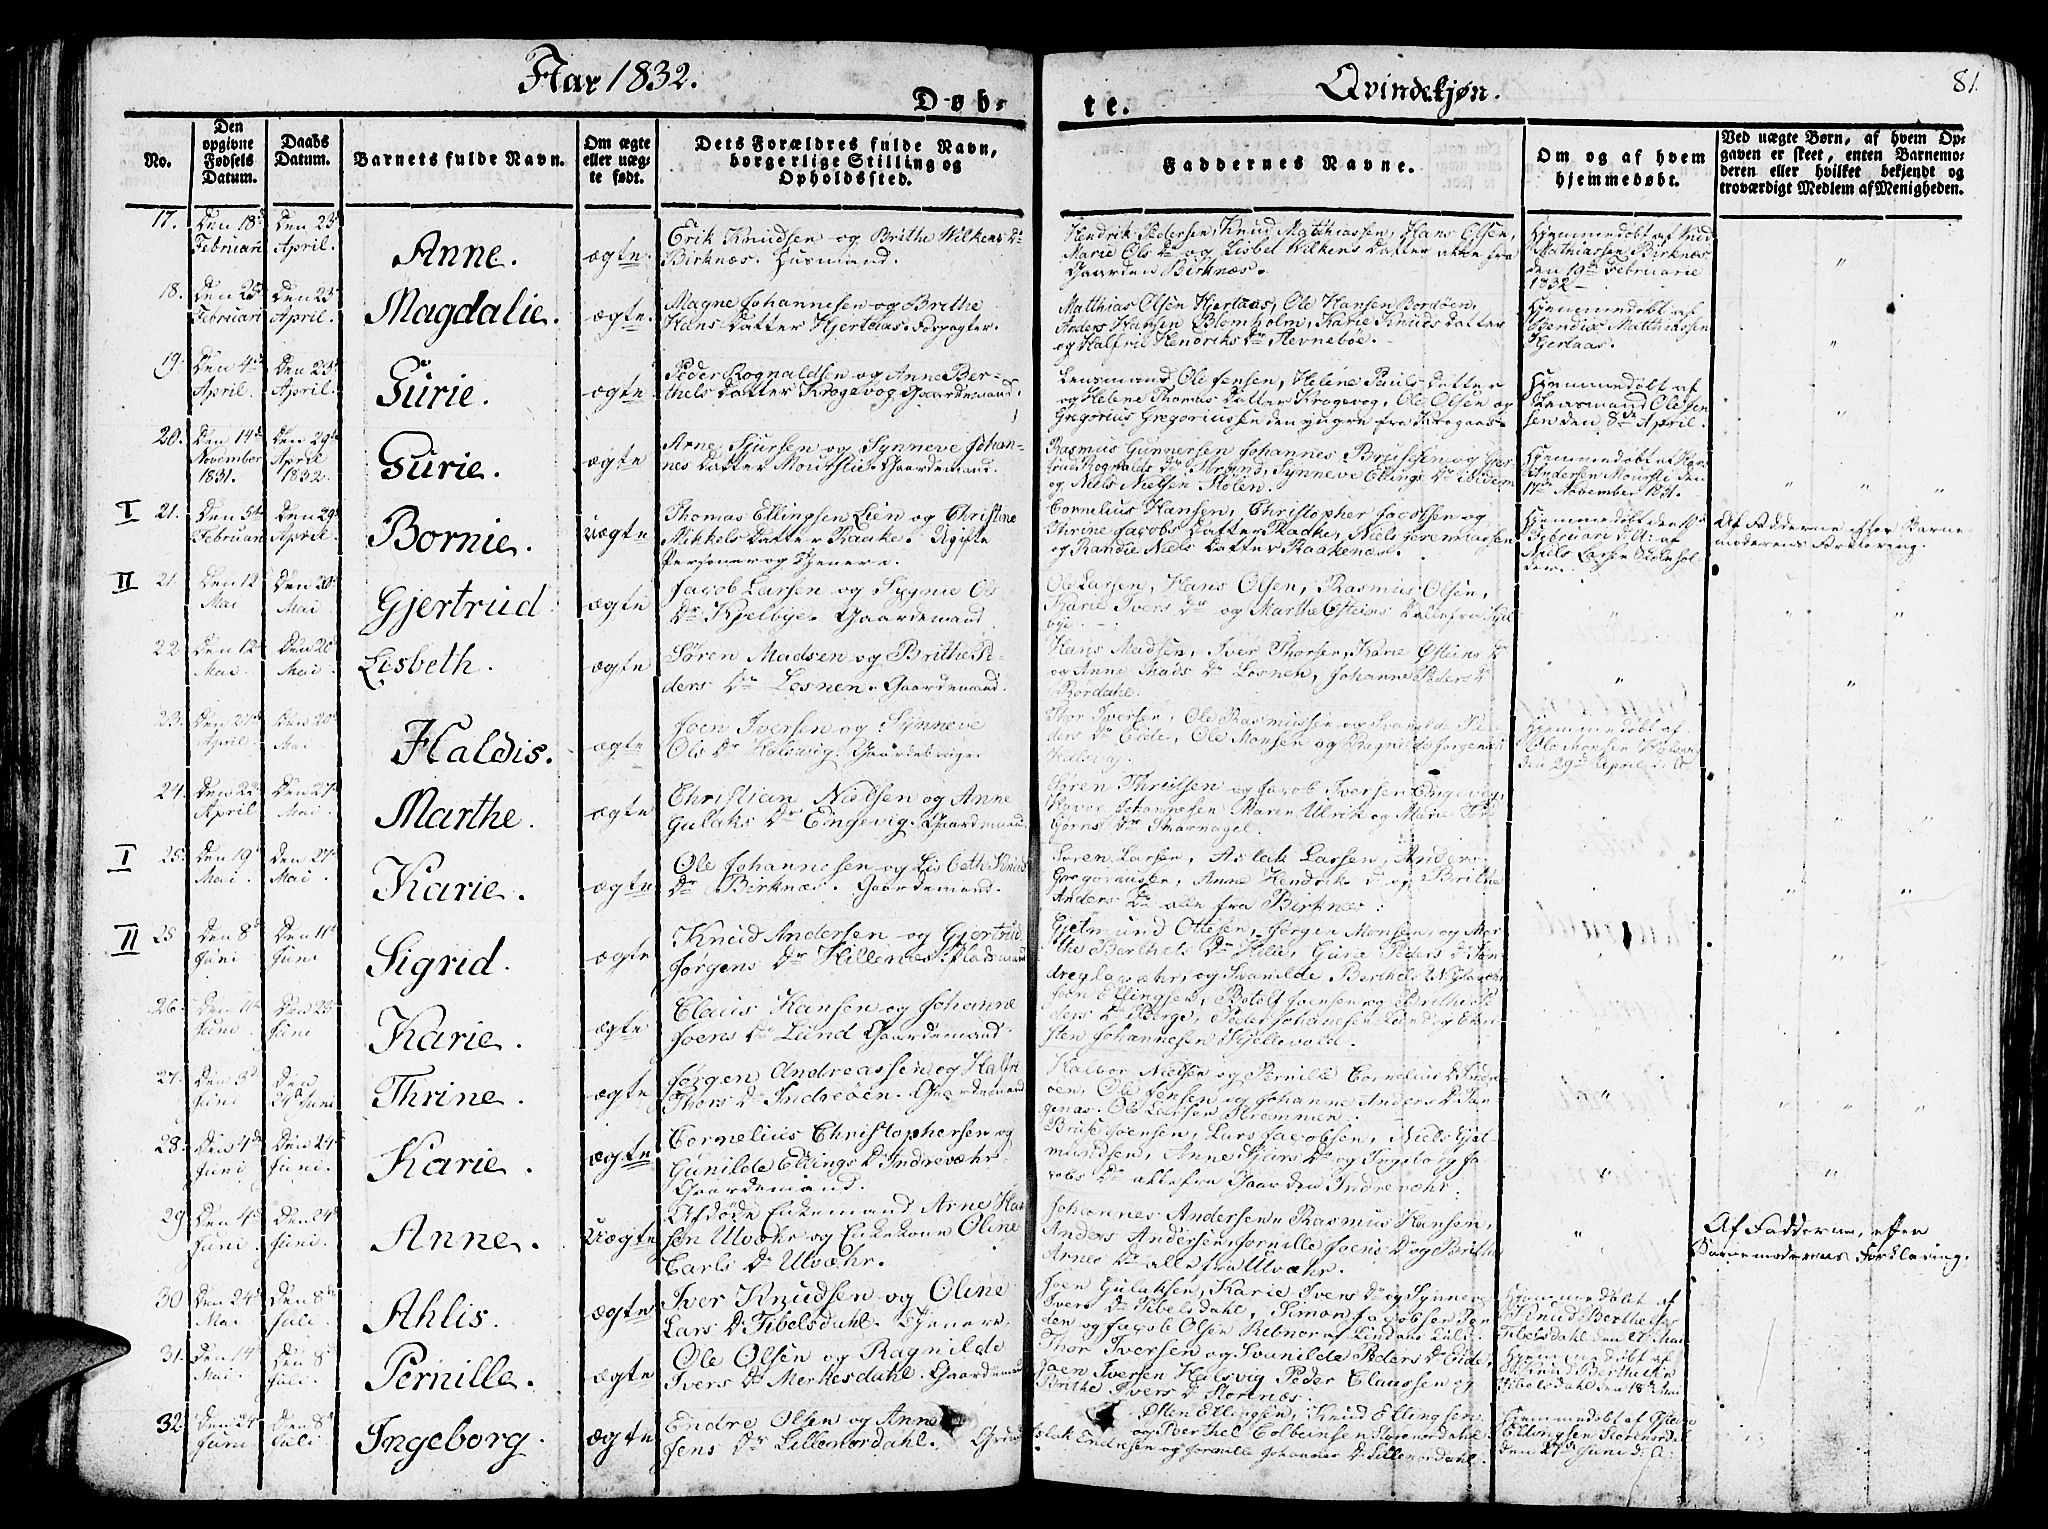 Aar 1832.
Døb-
te.
Qvindekjøn.
81.
No.
Den opgivne Fødsels Datum.
Daabs Datum.
Barnets fulde Navn.
Om ægte eller uægte født.
Dets Forældres fulde Navn, borgerlige Stilling og Opholdssted.
Faddernes Navne.
Om og af hvem hjemmedøbt.
Ved uægte Børn, af hvem Opgaven er skeet, enten Barnemoderen eller hvilket bekjendt og troværdigt Medlem af Menigheden.
17.
Den 18d
Februari
Den 23d
April.
Anne.
ægte.
Erik Knudsen og Brithe Wilkens Dr
Birknæs. Husmand.
Hendrik Pedersen, Knud Matthiassen, Hans Olsen,
Marie Ols Dr og Lisbet Wilkens Datter alle fra
Gaarden Birknæs.
Hjemmedøbt af Knud
Mathiassen Birknæs
den 19de Februarie
1832
18.
Den 25d
Februari
Den 23d
April.
Magdalie.
ægte.
Magne Johannesen og Brithe
Hans Datter Hjertaas. Forpagter.
Matthias Olsen Hjertaas, Ole Hansen Bordøen,
Anders Hansen Blomholm, Karie Knuds Datter
og Halfrid Hendriks Dr Stevnebøe.
Hjemmedøbt af
Bendix Matthiassen
Hjertaas.
19.
Den 4de
April.
Den 23d
April.
Gurie.
ægte
Peder Rognaldsen og Anne Ber-
thels Datter Krogevog Gaardemand.
Lensmand Ole Jensen, Helene Pauls Datter
og Helene Thomas Datter Krogevog, Ole Olsen og
Gregorius Gregoriussen den yngre fra Krogaas
Hjemmedøbt af
Lensmand Ole Jen-
sen den 8de April.
20.
Den 14d
November
1831.
Den 29d
April
1832.
Gurie.
ægte
Arne Sjursen og Synneve Johan-
nes Datter Mourslie. Gaardemand.
Rasmus Gunnersen Johannes Brusesen og Ger-
trud Rognalds Dr Strand, Synneve Ellings Dr ibidem
og Niels Nielsen Stølen.
Hjemmedøbt af Hans
Andersen Moursli den
17de November 1831.
I 21.
Den 5te
Februari
Den 29d
April.
Bornie.
Uægte
Thomas Ellingsen Lien og Christine
Mikkels Datter Raake. Ugifte
Personer og Tjenere.
Cornelius Hansen, Christopher Jacobsen og
Thrine Jacobs Datter Raake, Niels Jeremiassen
og Randie Niels Datter Raakenæs.
Niels Larsen
Af Fadderne efter Barne-
moderens Forklaring.
II 21
Den 12
Mai
Den 20d
Mai
Gjertrud
ægte
Jacob Larsen og Sygnie Ols
Dr Kjelbye. Gaardemand.
Ole Larsen, Hans Olsen, Rasmus Olsen,
Karie Ivers Dr og Marthe Østeins Datter fra Kjel-
bye
22
Den 12
Mai
Den 20d
Mai
Lisbeth.
ægte
Søren Madsen og Brithe Pe-
ders Dr Losnen. Gaardemand.
Hans Madsen, Iver Thorsen, Karie Østeins Dr
og Anne Mads Dr Losnen, Johanne Peders Dr
Bordahl.
23.
April
Den 20d
Mai
Haldis.
ægte
Joen Iversen og Synneve
Ols Dr Halsvig. Gaardebruger.
Thor Iversen, Ole Rasmussen og Svanilde Pe-
ders Dr Eide, Ole Monsen og Ragnilde Jørgens Dr
Halsvig.
Hjemmedøbt af
Ole Monsen Halsvig
den 29d April
24.
Den 22d
April
Den 27d
Mai
Marthe.
ægte
Christian Nielsen og Anne
Gulaks Dr Eingevig. Gaardemand.
Søren Thruelsen og Jacob Iversen Eingevig,
Johannesen Maren Ulrik og Marie Tor-
biørns Dr Smørhagel.
I 25.
Den 19d
Mai
Den 27d
Mai
Karie.
ægte
Ole Johannesen og Lisbeth Knuds
Dr Birknæs. Gaardemand.
Søren Larsen, Aslak Larsen, Anders
Gregoriussen, Anne Hendriks Dr og Brithe
Anders Dr alle fra Birknæs:
II 25
Den 8d
Juni
Den 11d
Juni
Sigrid.
ægte
Knud Andersen og Gjertrud
Jørgens Dr Hillenes. Pladsmand
Gjelmund Ottesen, Jørgen Monsen og Mar-
the Berthels Dr Hille, Gurie Peders Dr
og Svanilde Berthels
26.
Juni
Den 25
Juni
Karie.
ægte
Claus Hansen og Johanne
Joens Dr Lund Gaardemand.
Joen Ellingsen, Botolf Joensen og Brithe Pe-
ders Dr Berge, Peder Johannesen Lund og Chri-
sten Johannesen Hjellevold.
27.
Den 3d
Juni
Den
24d Juni
Thrine.
ægte
Jørgen Andreassen og Halbor
Thors Dr Indreøen. Gaardemand
Halbor Nielsen og Pernille Cornelius Dr Indre-
øen, Ole Jensen og Johanne Anders Dr
Ole Larsen Strømmen.
28.
Den 4de
Juni
Den 24
Juni.
Karie.
ægte
Cornelius Christophersen og
Gunilde Ellings Dr Indrevæhr.
Gaardemand.
Bruse Joensen, Lars Jacobsen, Niels Gjel-
mundsen, Anne Sjurs Dr og Ingeborg Ja-
cobs Dr alle fra Gaarden Indrevæhr:
29
Den 4d
Juni
Den 24d
Juni.
Anne.
Uægte
Afdøde Enkemand Arne Han-
sen Utvæhr og Enkekone Oline
Carls Dr Utvæhr.
Johannes Andersen, Rasmus Hansen,
Anders Andersen, Pernille Joens Dr og Brithe
Arnes Dr alle fra Utvæhr.
Af Fadderne, efter
Barnemoderens Forklaring.
30
Den 24d
Mai
Den 8d
Juli.
Ahlis.
ægte
Iver Knudsen og Oline
Lars Dr Tibelsdahl. Tjenere.
Joen Gulaksen, Karie Ivers Dr og Synneve
Ivers Dr Tibelsdahl, Simon Jacobsen
og Jacob Olsen
Hjemmedøbt af
Knud Berthelsen
Tibelsdahl den 27 Mai
31.
Den 14
Mai.
Den 8d
Juli.
Pernille.
ægte
Ole Olsen og Ragnilde
Ivers Dr Merkesdahl. Gaardemand
Thor Iversen og Svanilde Peders Dr Eide,
Joen Iversen Halsvig Peder Claussen og
Brithe Ivers Dr Storenæs.
Hjemmedøbt af
Knud Berthelsen
Tibelsdahl den 18d Mai
32.
Juni
Den 8d
Juli
Ingeborg.
ægte
Endre Olsen og Anne
Jens Dr Lillenordahl.
Østen Ellingsen, Knud Ellingsen
og Berthel Colbeinsen Storenordahl.
Aslak Endresen og Pernille Johannes Dr Lillenordahl.
Hjemmedøbt af Østen
Ellingsen Storenordal
den 27d Juni d. A: